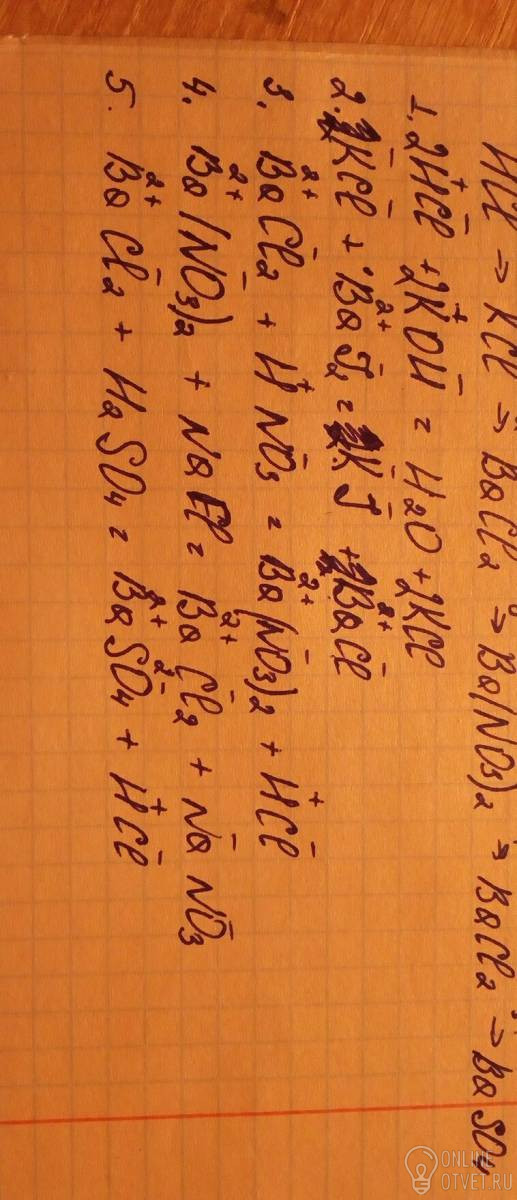 HCl → KCl → BaCl2 → Ba(NO3)2 → BaCl2 → BaSO4
1. 2H⁺Cl⁻ + 2K⁺OH⁻ = H2O + 2KCl
2. KCl⁻ + Ba²⁺J2⁻ = KJ⁻ + Ba²⁺Cl⁻
3. Ba²⁺Cl2⁻ + H⁺NO3⁻ = Ba²⁺(NO3⁻)2 + H⁺Cl⁻
4. Ba²⁺(NO3⁻)2 + NaCl = Ba²⁺Cl2⁻ + Na⁻NO3⁻
5. Ba²⁺Cl2⁻ + H2SO4 = Ba²⁺SO4²⁻ + H⁺Cl⁻
ONLINE
OTVET.RU